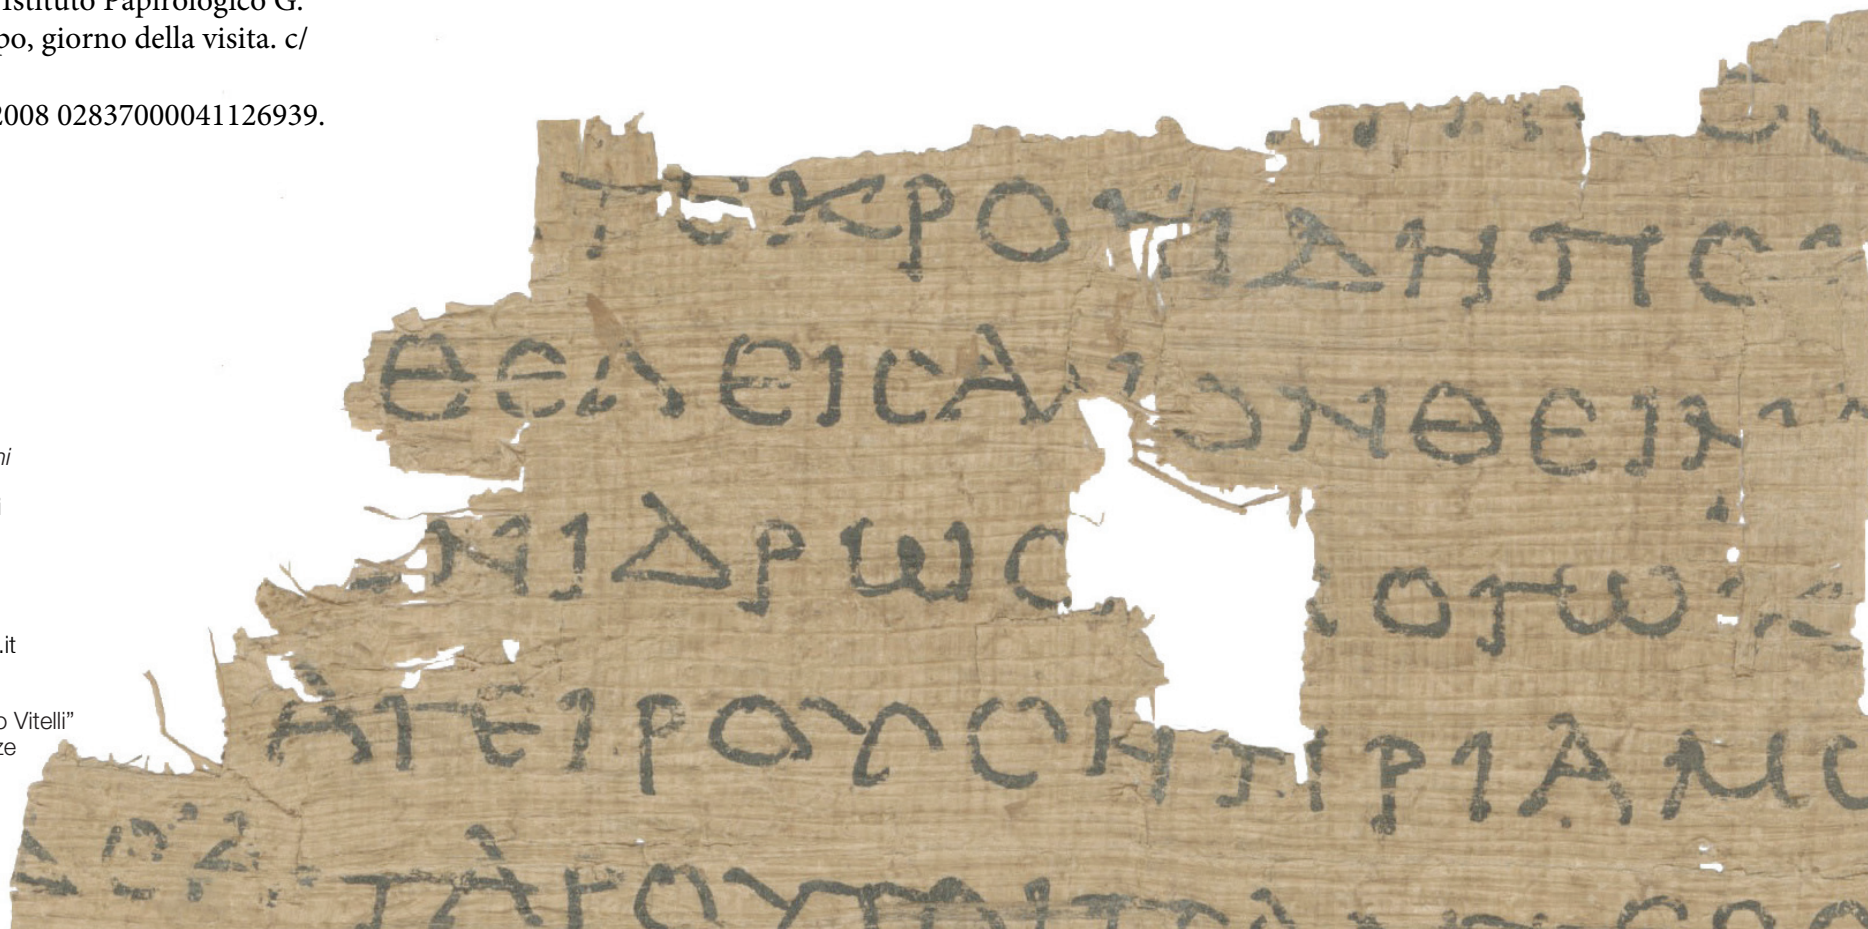 Istituto Papirologico G.
po, giorno della visita. c/
2008 02837000041126939.
ni
i
.it
o Vitelli”
ze
ΤΕΚΡΟΝΙΔΗΠΟ
ΘΕΛΕΙCΑΛΙΟΝΘΕΙΝ
ΝΙΔΡΩC ΟΓΩΚ
ΑΓΕΙΡΟΥCΗΠΡΙΑΜΩ
ΤΑΡΟΥΤΟΙΠΑ